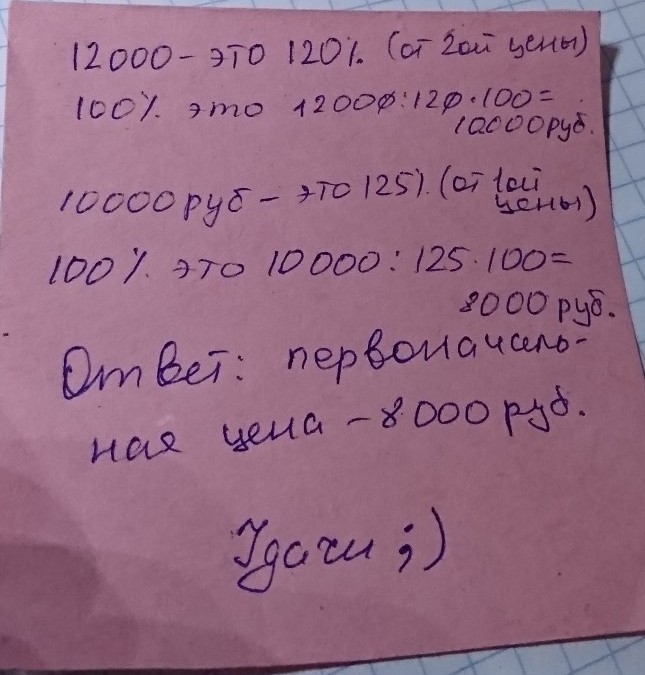 12000 - это 120%. (от 2ой цены)
100%. это 12000:120·100=
10000руб.
10000руб - это 125%. (от 1ой
цены)
100%. это 10000:125·100=
8000 руб.
Ответ: первоначаль-
ная цена - 8000 руб.
Удачи ;)